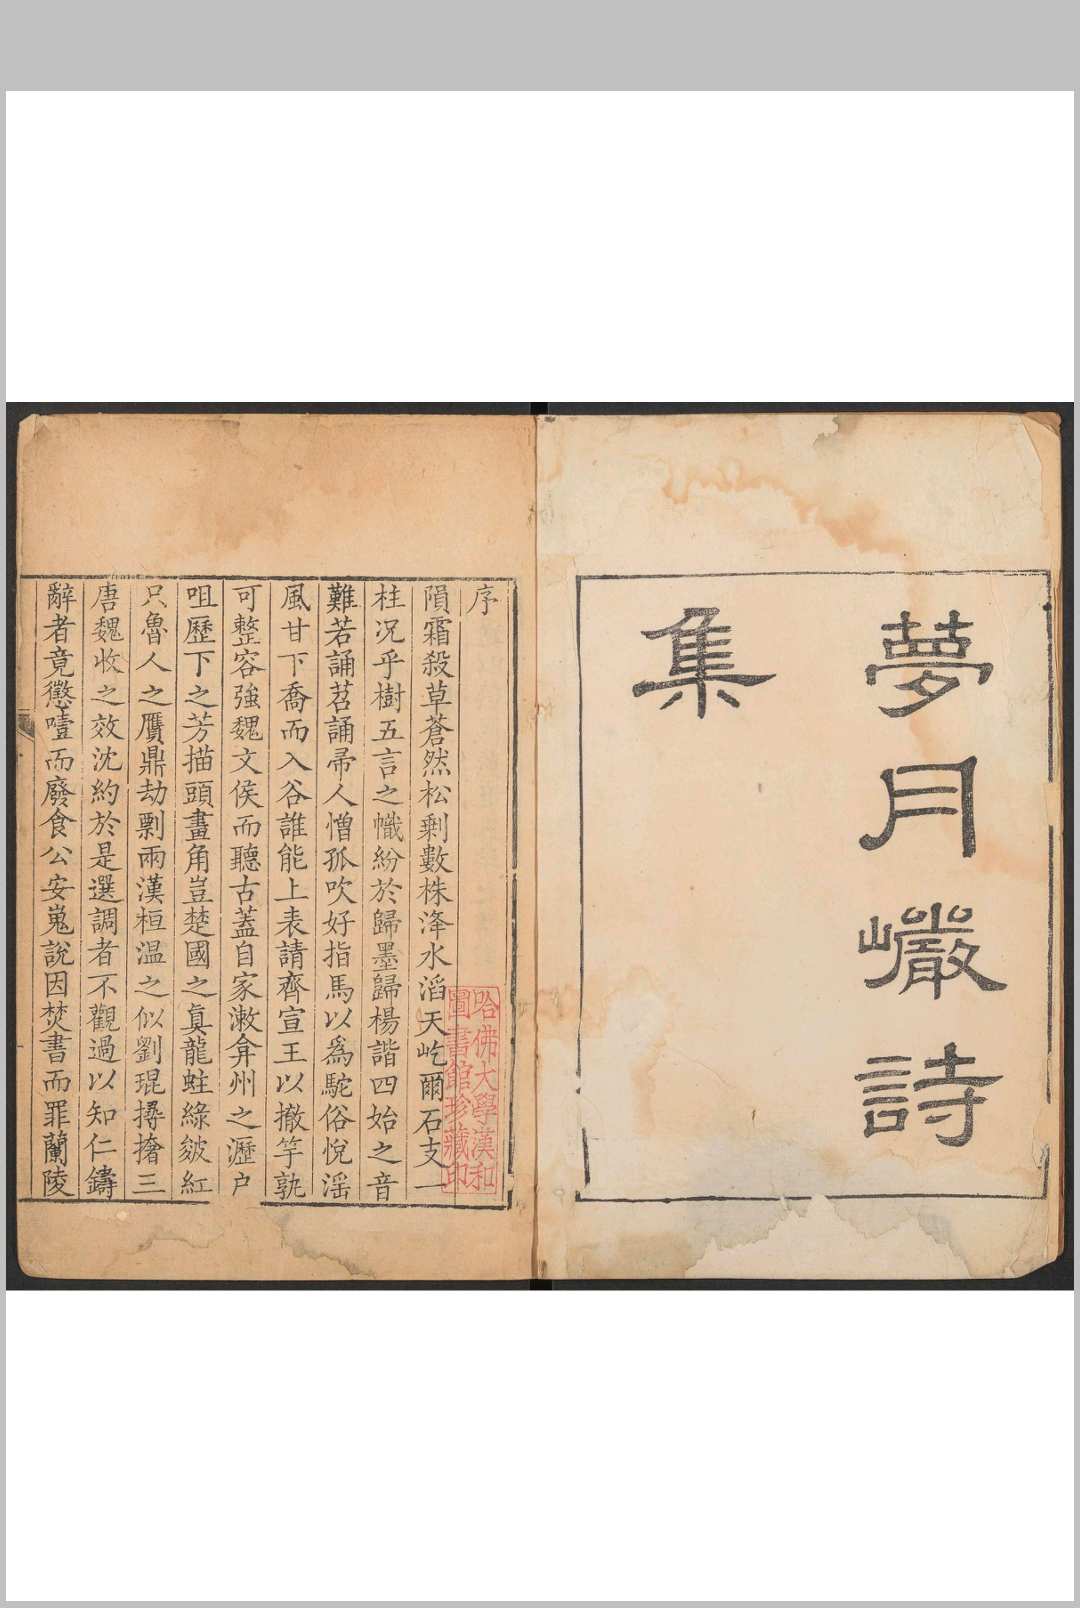 夢月巖詩
集
序
隕霜殺草蒼然松剩數株洚水滔天屹爾石支一
柱况乎樹五言之幟紛於歸墨歸楊諧四始之音
難若誦苕誦帚人憎孤吹好指馬以爲駝俗悅滛
風甘下喬而入谷誰能上表請齊宣王以撤竽孰
可整容強魏文侯而聽古蓋自家漱弇州之瀝户
咀歷下之芳描頭畫角豈楚國之眞龍蛀綠皴紅
只魯人之贋鼎劫剽兩漢桓温之似劉琨撏撦三
唐魏收之效沈約於是選調者不觀過以知仁鑄
辭者竟懲噎而廢食公安嵬說因焚書而罪蘭陵
哈佛大學漢和
圖書館珍藏印